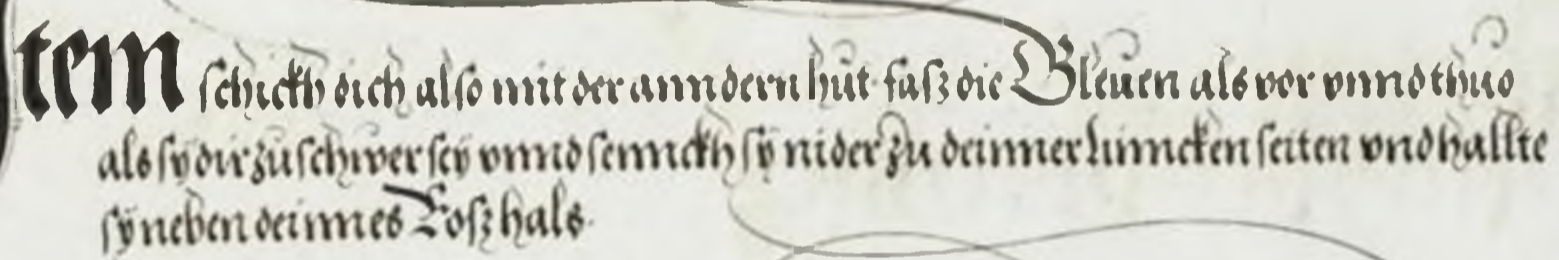 tem schickh dich also mit der anndern hüt fasz die Gleuen als vor vnnd thuo
als sÿ dir zů schwer seÿ vnnd sennckh sÿ nider zu deinner linncken seiten vnd hallte
sÿ neben deinnes Rosz hals.